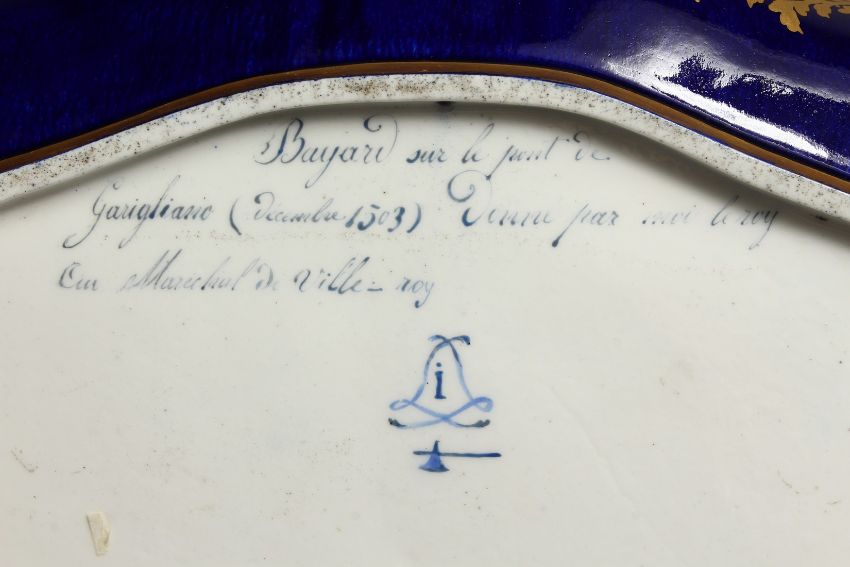 Bayard sur le pont de
Garigliano (décembre 1503) Donné par moi le roy
au Marechal de Ville-roy
i